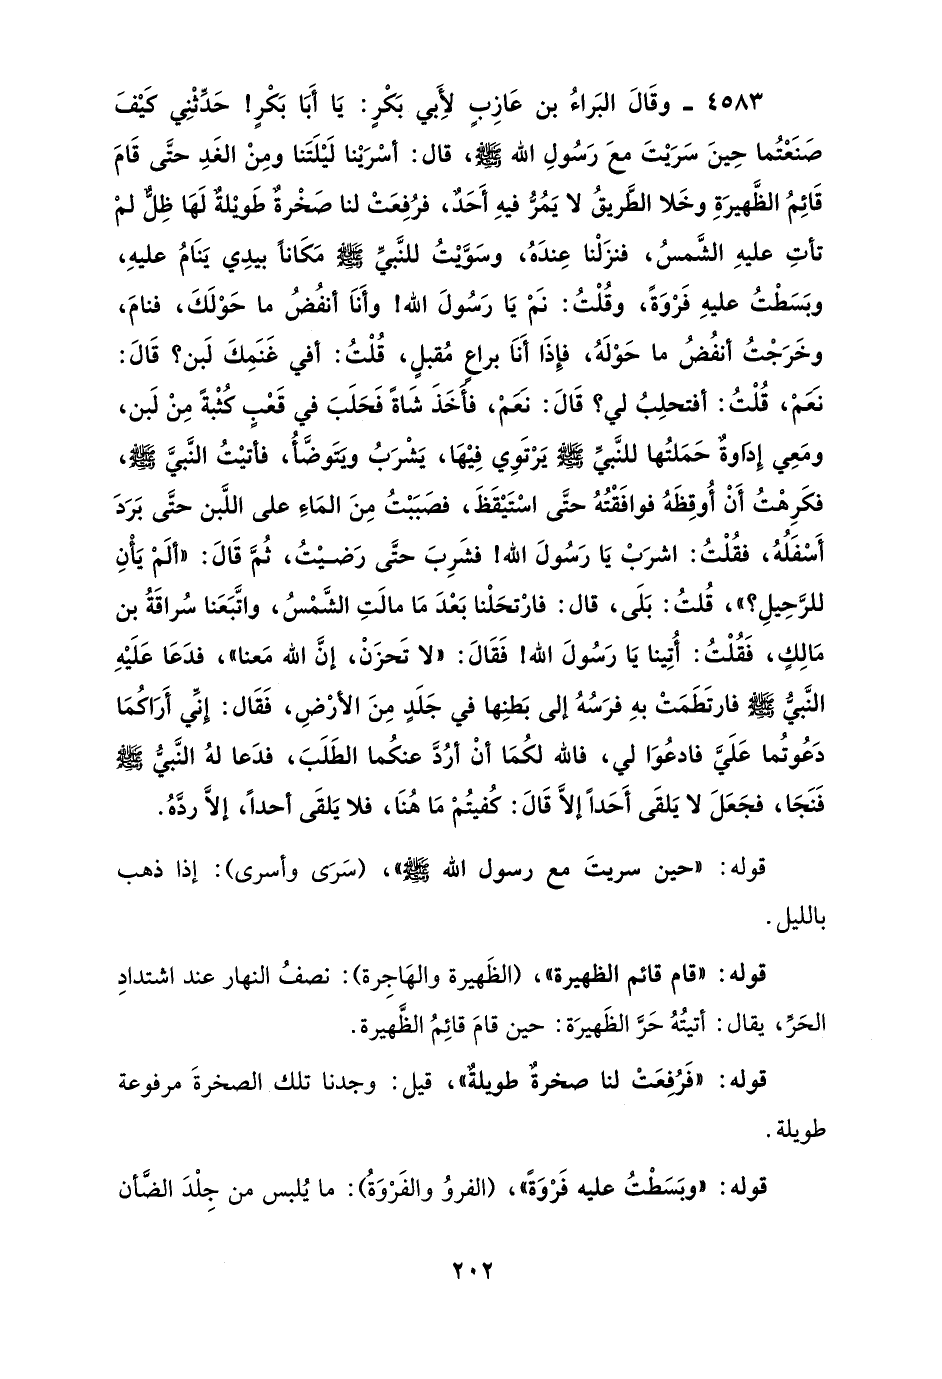 ٤٥٨٣ ـ وقَالَ البَراءُ بن عَازِبٍ لأَبي بَكْرٍ: يَا أَبَا بَكْرٍ! حَدِّثْنِي كَيْفَ
صَنَعْتُما حِينَ سَرَيْتَ معَ رَسُولِ الله ﷺ، قال: أسْرَيْنا لَيْلَتَنا ومِنْ الغَدِ حتَّى قَامَ
قَائِمُ الظَّهيرَةِ وخَلا الطَّريقُ لا يَمُرُّ فيهِ أَحَدٌ، فرُفِعَتْ لنا صَخْرةٌ طَويلةٌ لَهَا ظِلٌّ لمْ
تأتِ عليهِ الشَّمسُ، فنزَلْنا عِندَهُ، وسَوَّيْتُ للنَّبيِّ ﷺ مَكَاناً بيدِي يَنَامُ عليهِ،
وبَسَطْتُ عليهِ فَرْوَةً، وقُلْتُ: نَمْ يَا رَسُولَ الله! وأَنَا أنفُضُ ما حَوْلَكَ، فنامَ،
وخَرَجْتُ أنفُضُ ما حَوْلَهُ، فإِذَا أَنَا براعٍ مُقبلٍ، قُلْتُ: أفي غَنَمِكَ لَبن؟ قَالَ:
نعَمْ، قُلْتُ: أفتحلِبُ لي؟ قَالَ: نَعَمْ، فأَخَذَ شَاةً فَحَلَبَ في قَعْبٍ كُثْبةً مِنْ لَبن،
ومَعِي إِدَاوةٌ حَمَلتُها للنَّبيِّ ﷺ يَرْتَوِي فِيْهَا، يَشْرَبُ ويَتَوضَّأُ، فأتيْتُ النَّبيَّ ﷺ،
فكَرِهْتُ أَنْ أُوقِظَهُ فوافَقْتُهُ حتَّى اسْتَيْقَظَ، فصَبَبْتُ مِنَ المَاءِ على اللَّبن حتَّى بَرَدَ
أَسْفَلُهُ، فقُلْتُ: اشرَبْ يَا رَسُولَ الله! فشَرِبَ حتَّى رَضيْتُ، ثُمَّ قَالَ: «ألَمْ يَأْنِ
للرَّحِيلِ؟»، قُلتُ: بَلَى، قال: فارْتَحَلْنا بَعْدَ مَا مالَتِ الشَّمْسُ، واتَّبَعَنا سُراقَةُ بن
مَالِكٍ، فَقُلْتُ: أُتِينا يَا رَسُولَ الله! فَقَالَ: «لا تَحزَنْ، إنَّ الله مَعنا»، فدَعَا عَلَيْهِ
النَّبيُّ ﷺ فارتَطَمَتْ بهِ فرَسُهُ إلى بَطنِها في جَلَدٍ مِنَ الأرْضِ، فَقَال: إِنِّي أَرَاكُمَا
دَعُوتُما عَلَيَّ فادعُوَا لي، فالله لكُمَا أنْ أرُدَّ عنكُما الطَّلَبَ، فدَعا لهُ النَّبيُّ ﷺ
فَنَجَا، فجَعَلَ لا يَلقَى أَحَداً إلاَّ قَالَ: كُفيتُمْ مَا هُنَا، فلا يَلقَى أحداً، إلاَّ ردَّهُ.
قوله: «حين سريتَ مع رسول الله ﷺ»، (سَرَى وأسرى): إذا ذهب
بالليل.
قوله: «قام قائم الظهيرة»، (الظَهيرة والهَاجِرة): نصفُ النهار عند اشتدادِ
الحَرِّ، يقال: أتيتُهُ حَرَّ الظَهيرَة: حين قامَ قائِمُ الظَّهيرة.
قوله: «فَرُفِعَتْ لنا صخرةٌ طويلةٌ»، قيل: وجدنا تلك الصخرةَ مرفوعة
طويلة.
قوله: «وبَسَطْتُ عليه فَرْوَةً»، (الفروُ والفَرْوَةُ): ما يُلبس من جِلْدَ الضَّأن
٢٠٢